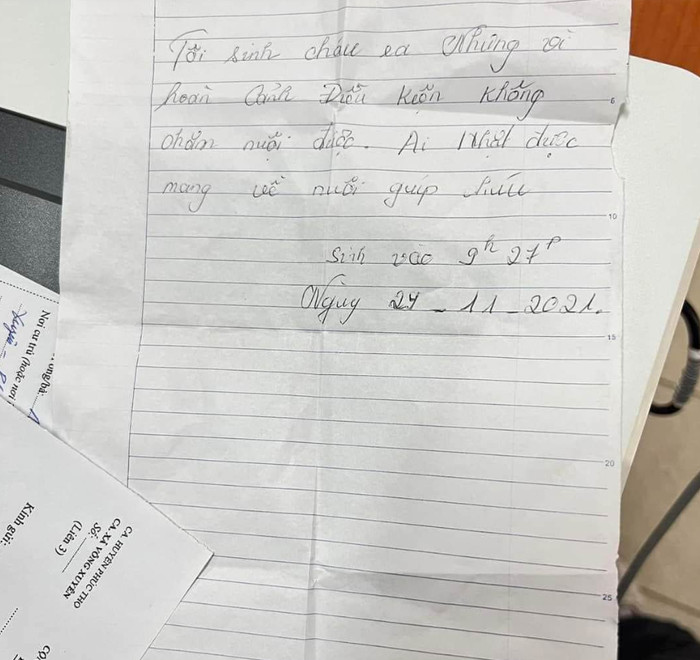 Tôi sinh cháu ra Nhưng vì
hoàn Cảnh Điều Kiện không
chăm nuôi được. Ai Nhặt được
mang về nuôi giúp
sinh vào 9h 27p
Ngày 24 - 11 - 2021.
6
10
15
20
25
Nơi cư trú (hoặc nơi
ông/bà:
CA. HUYỆN PHÚC THỌ
CA. XÃ VÕNG XUYÊN
Số:
(Liên 3)
Kính gửi: